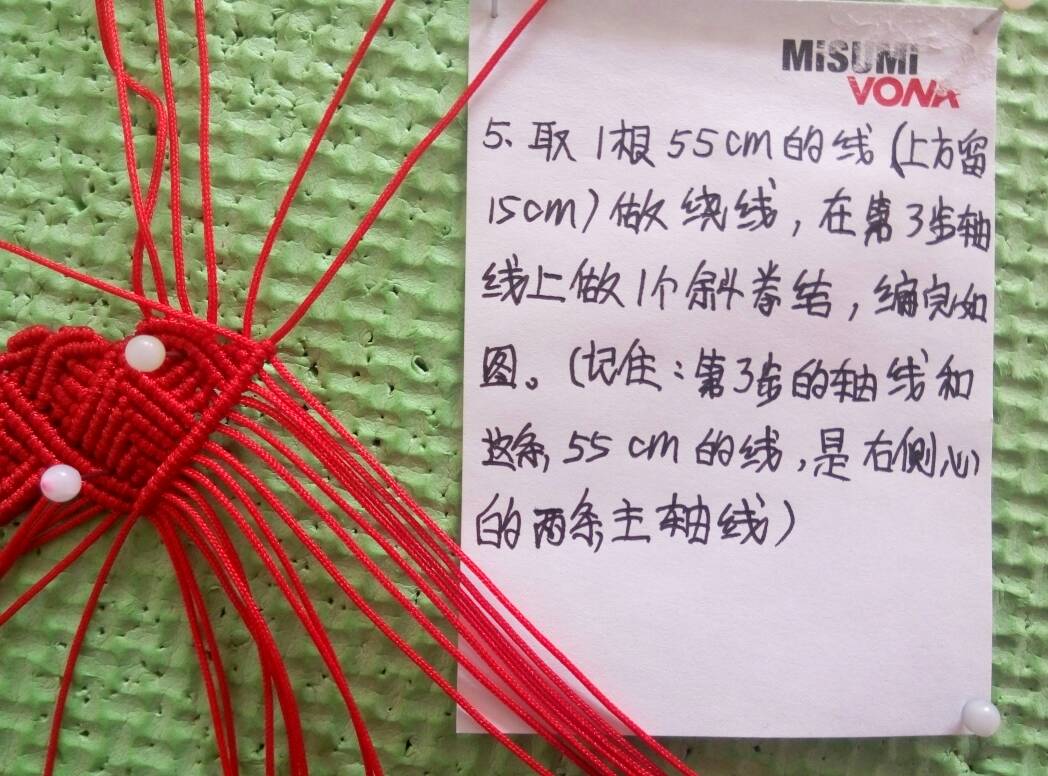 MiSUMi
VONA
5、取1根55cm的线(上方留
15cm)做绕线,在第3步轴
线上做1个斜卷结,编完如
图。(记住:第3步的轴线和
这条55cm的线,是右侧心
的两条主轴线)